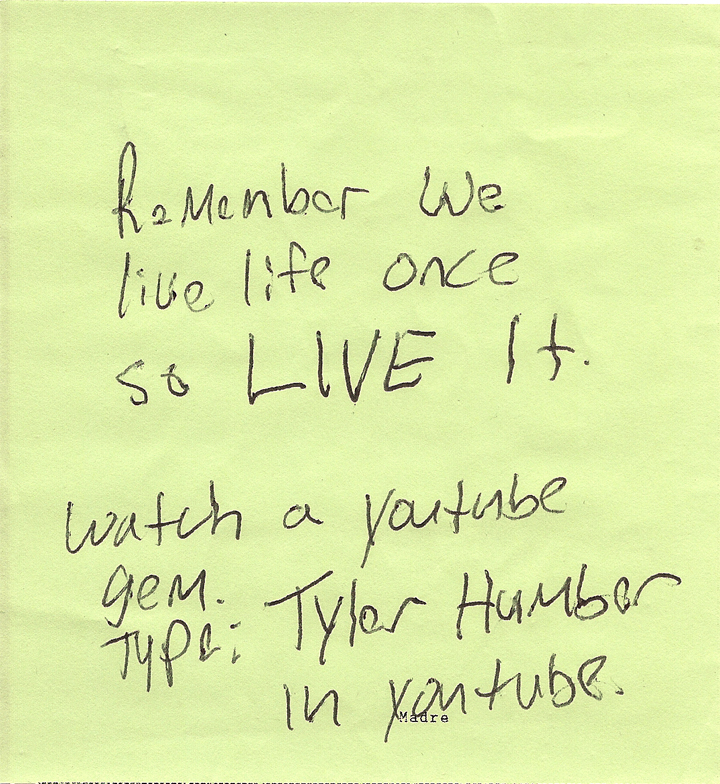 Remember We
live life once
so LIVE It.
watch a youtube
gem.
Type: Tyler Humber
in youtube.
Madre